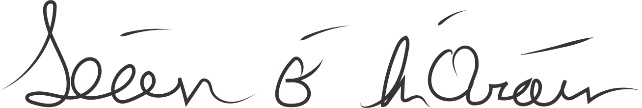 Seán Ó hÓráin